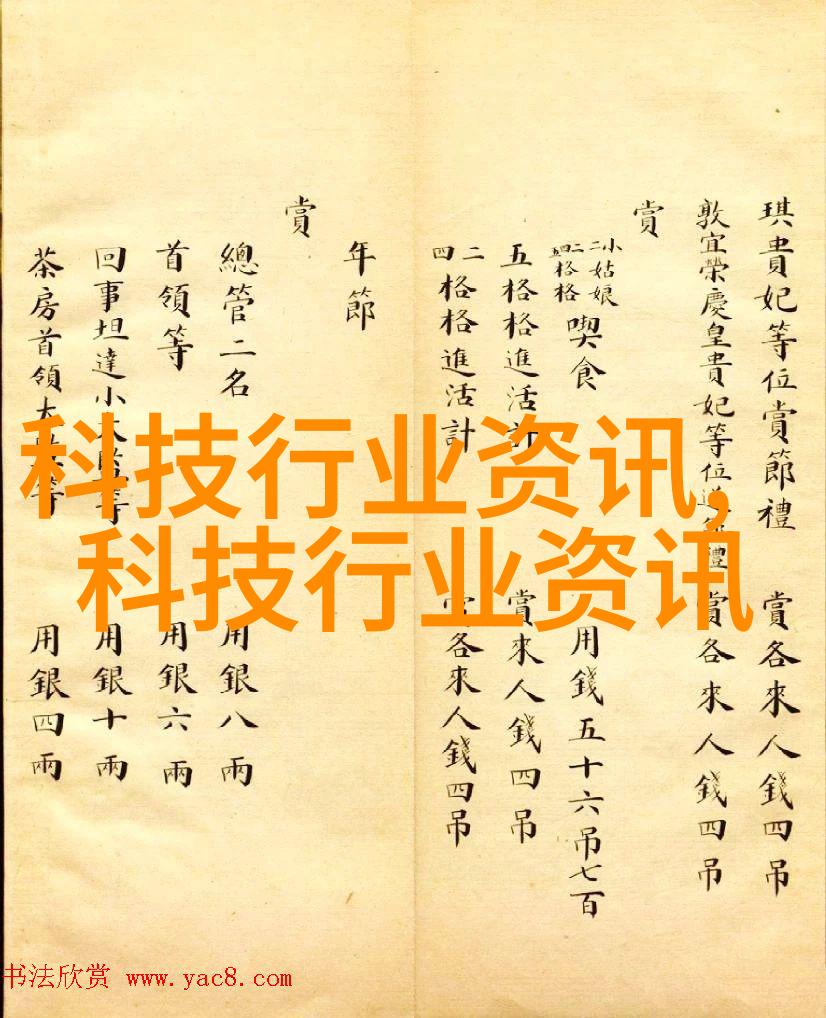 琪貴妃等位賞節禮 賞各來人錢四吊
敦宜榮慶皇貴妃等位進禮 賞各來人錢四吊
賞
小二姑娘二四五格格喫食 用錢五十六吊七百
五格格進活計 賞來人錢四吊
二四格格進活計 賞各來人錢四吊
年節
賞
總管二名 用銀八兩
首領等 用銀六兩
回事坦達小太監等 用銀十兩
茶房首領太監等 用銀四兩
科技行业资讯,
科技行业资讯
书法欣赏 www.yac8.com